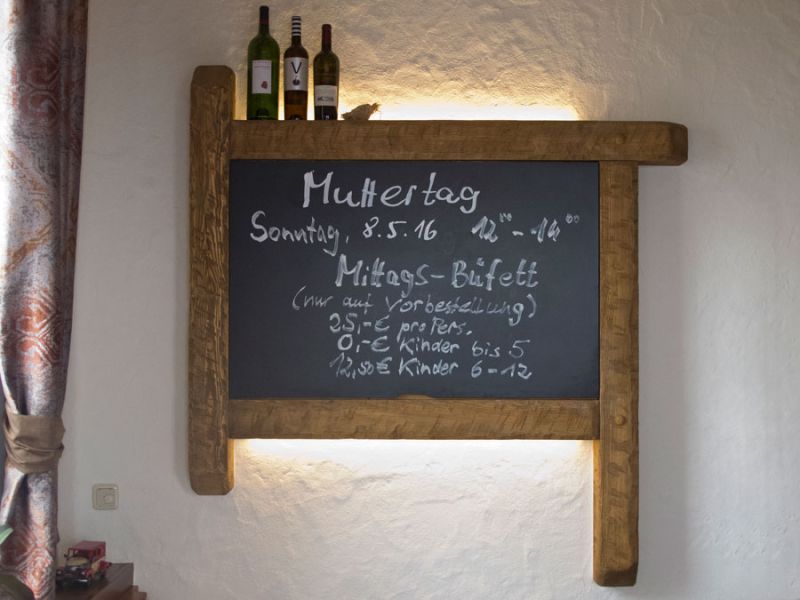 Muttertag
Sonntag, 8.5.16 12⁰⁰-14⁰⁰
Mittags-Büfett
(nur auf Vorbestellung)
25,-€ pro Pers.
0,-€ Kinder bis 5
12,50€ Kinder 6-12
V